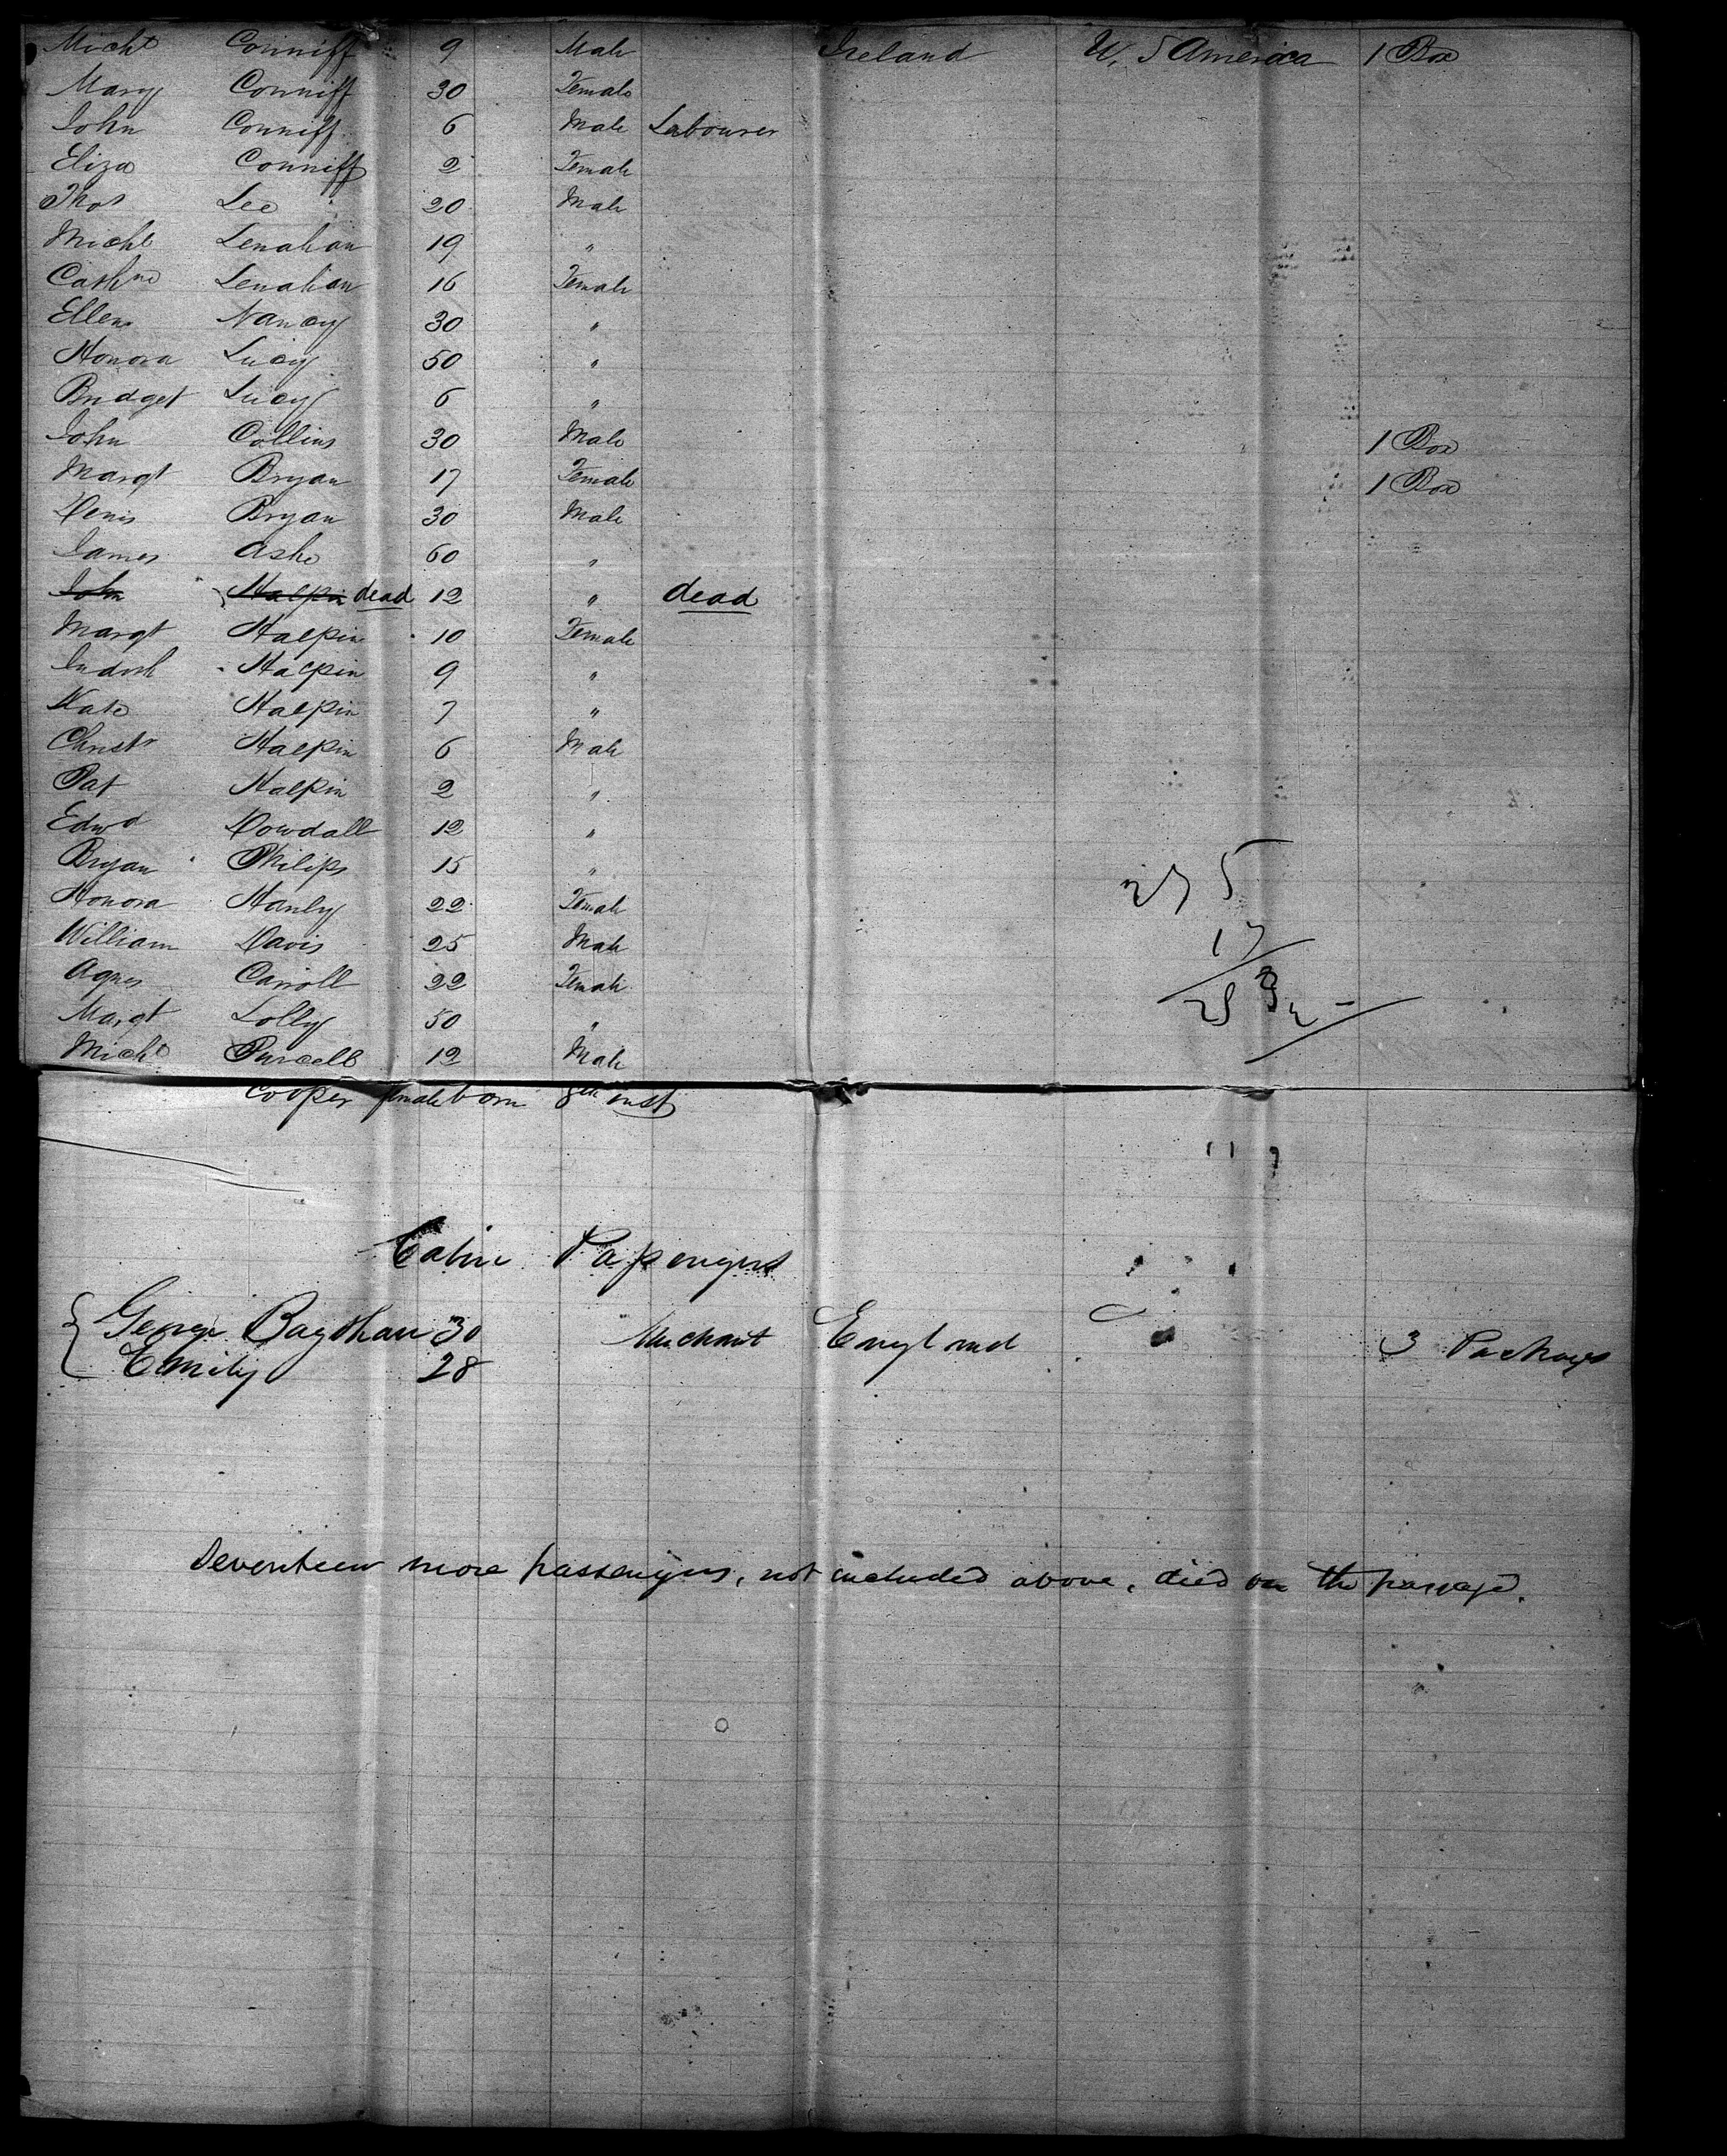 Michl Conniff 9 Male Ireland U. S America 1 Box
Mary Conniff 30 Female
John Conniff 6 Male Labourer
Eliza Conniff 2 Female
Thos Lee 20 Male
Michl Lenahan 19 "
Cathne Lenahan 16 Female
Ellen Nancy 30 "
Honora Lucy 50 "
Bridget Lucy 6 "
John Collins 30 Male 1 Box
Margt Bryan 17 Female 1 Box
Denis Bryan 30 Male
James Ashe 60 "
John Halpin dead 12 " dead
Margt Halpin 10 Female
Halpin 9 "
Kate Halpin 7 "
Christr Halpin 6 Male
Pat Halpin 2 "
Edwd Dowdall 12 "
Bryan Philips 15 "
Honora Hanly 22 Female
William Davis 25 Male
Agnes Carroll 22 Female
Margt Lolly 50 "
Michl Purcell 12 Male
275
17
Cooper female born 8th inst
Cabin Passengers
George Bagshaw 30 Merchant England 3 Packages
Emily 28
Seventeen more passengers, not included above, died on the passage.